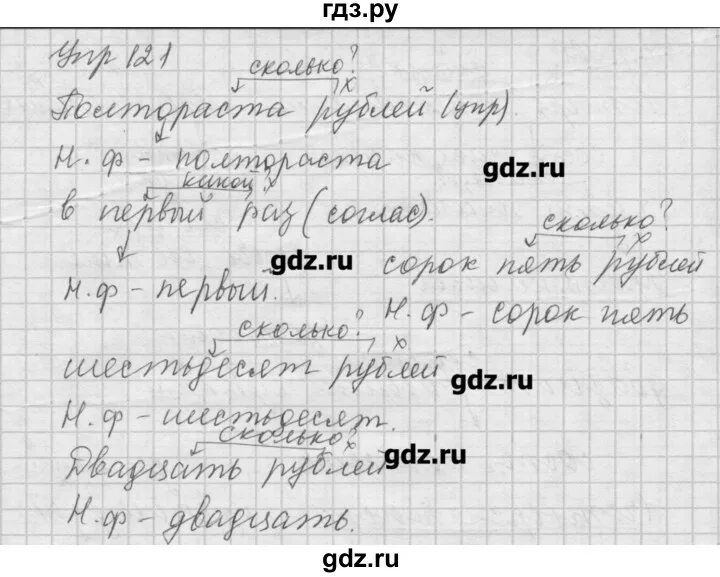 гдз.ру
Упр 121
сколько?
х
Полтораста рублей (упр).
Н.ф - полтораста
gdz.ru
какой?
х
в первый раз (соглас).
gdz.ru
Н.ф - первый.
сколько?
х
сорок пять рублей
Н.ф - сорок пять
сколько?
х
шестьдесят рублей
gdz.ru
Н.ф - шестьдесят.
сколько?
х
Двадцать рублей
gdz.ru
Н.ф - двадцать.
gdz.ru